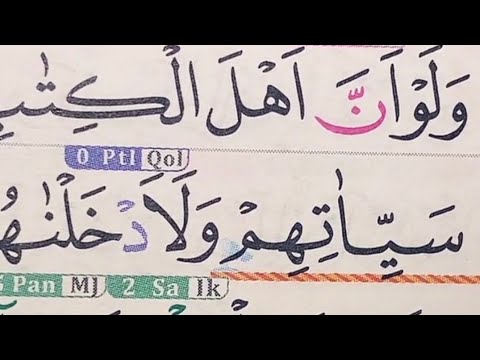 وَلَوْ اَنَّ اَهْلَ الْكِتٰبِ
0 Ptl Qol
سَيِّاٰتِهِمْ وَلَاَدْخَلْنٰهُ
Pan MJ 2 Sa Ik